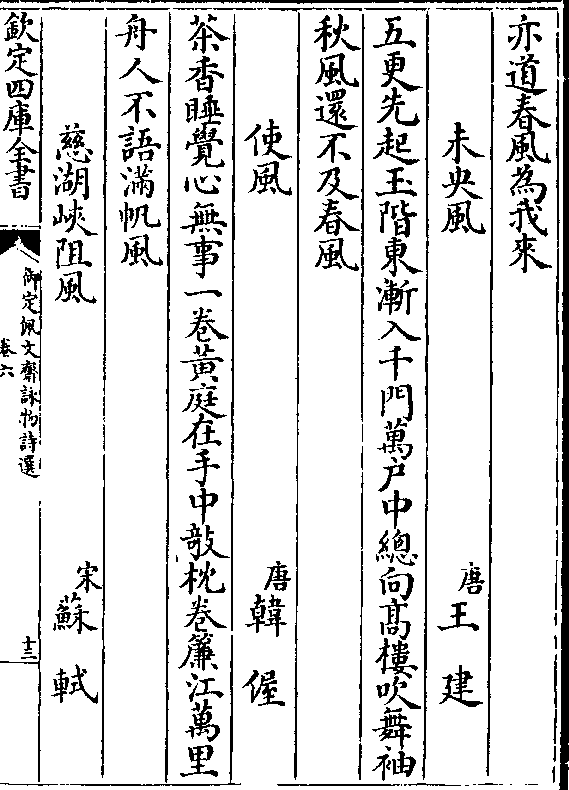 亦道春風為我來
未央風
唐王建
五更先起玉階東漸入千門萬户中總向髙樓吹舞袖
秋風還不及春風
使風
唐韓偓
茶香睡覺心無事一卷黃庭在手中敧枕卷簾江萬里
舟人不語滿帆風
慈湖峽阻風
宋蘇軾
欽定四庫全書
御定佩文齋詠物詩選
卷六
十三